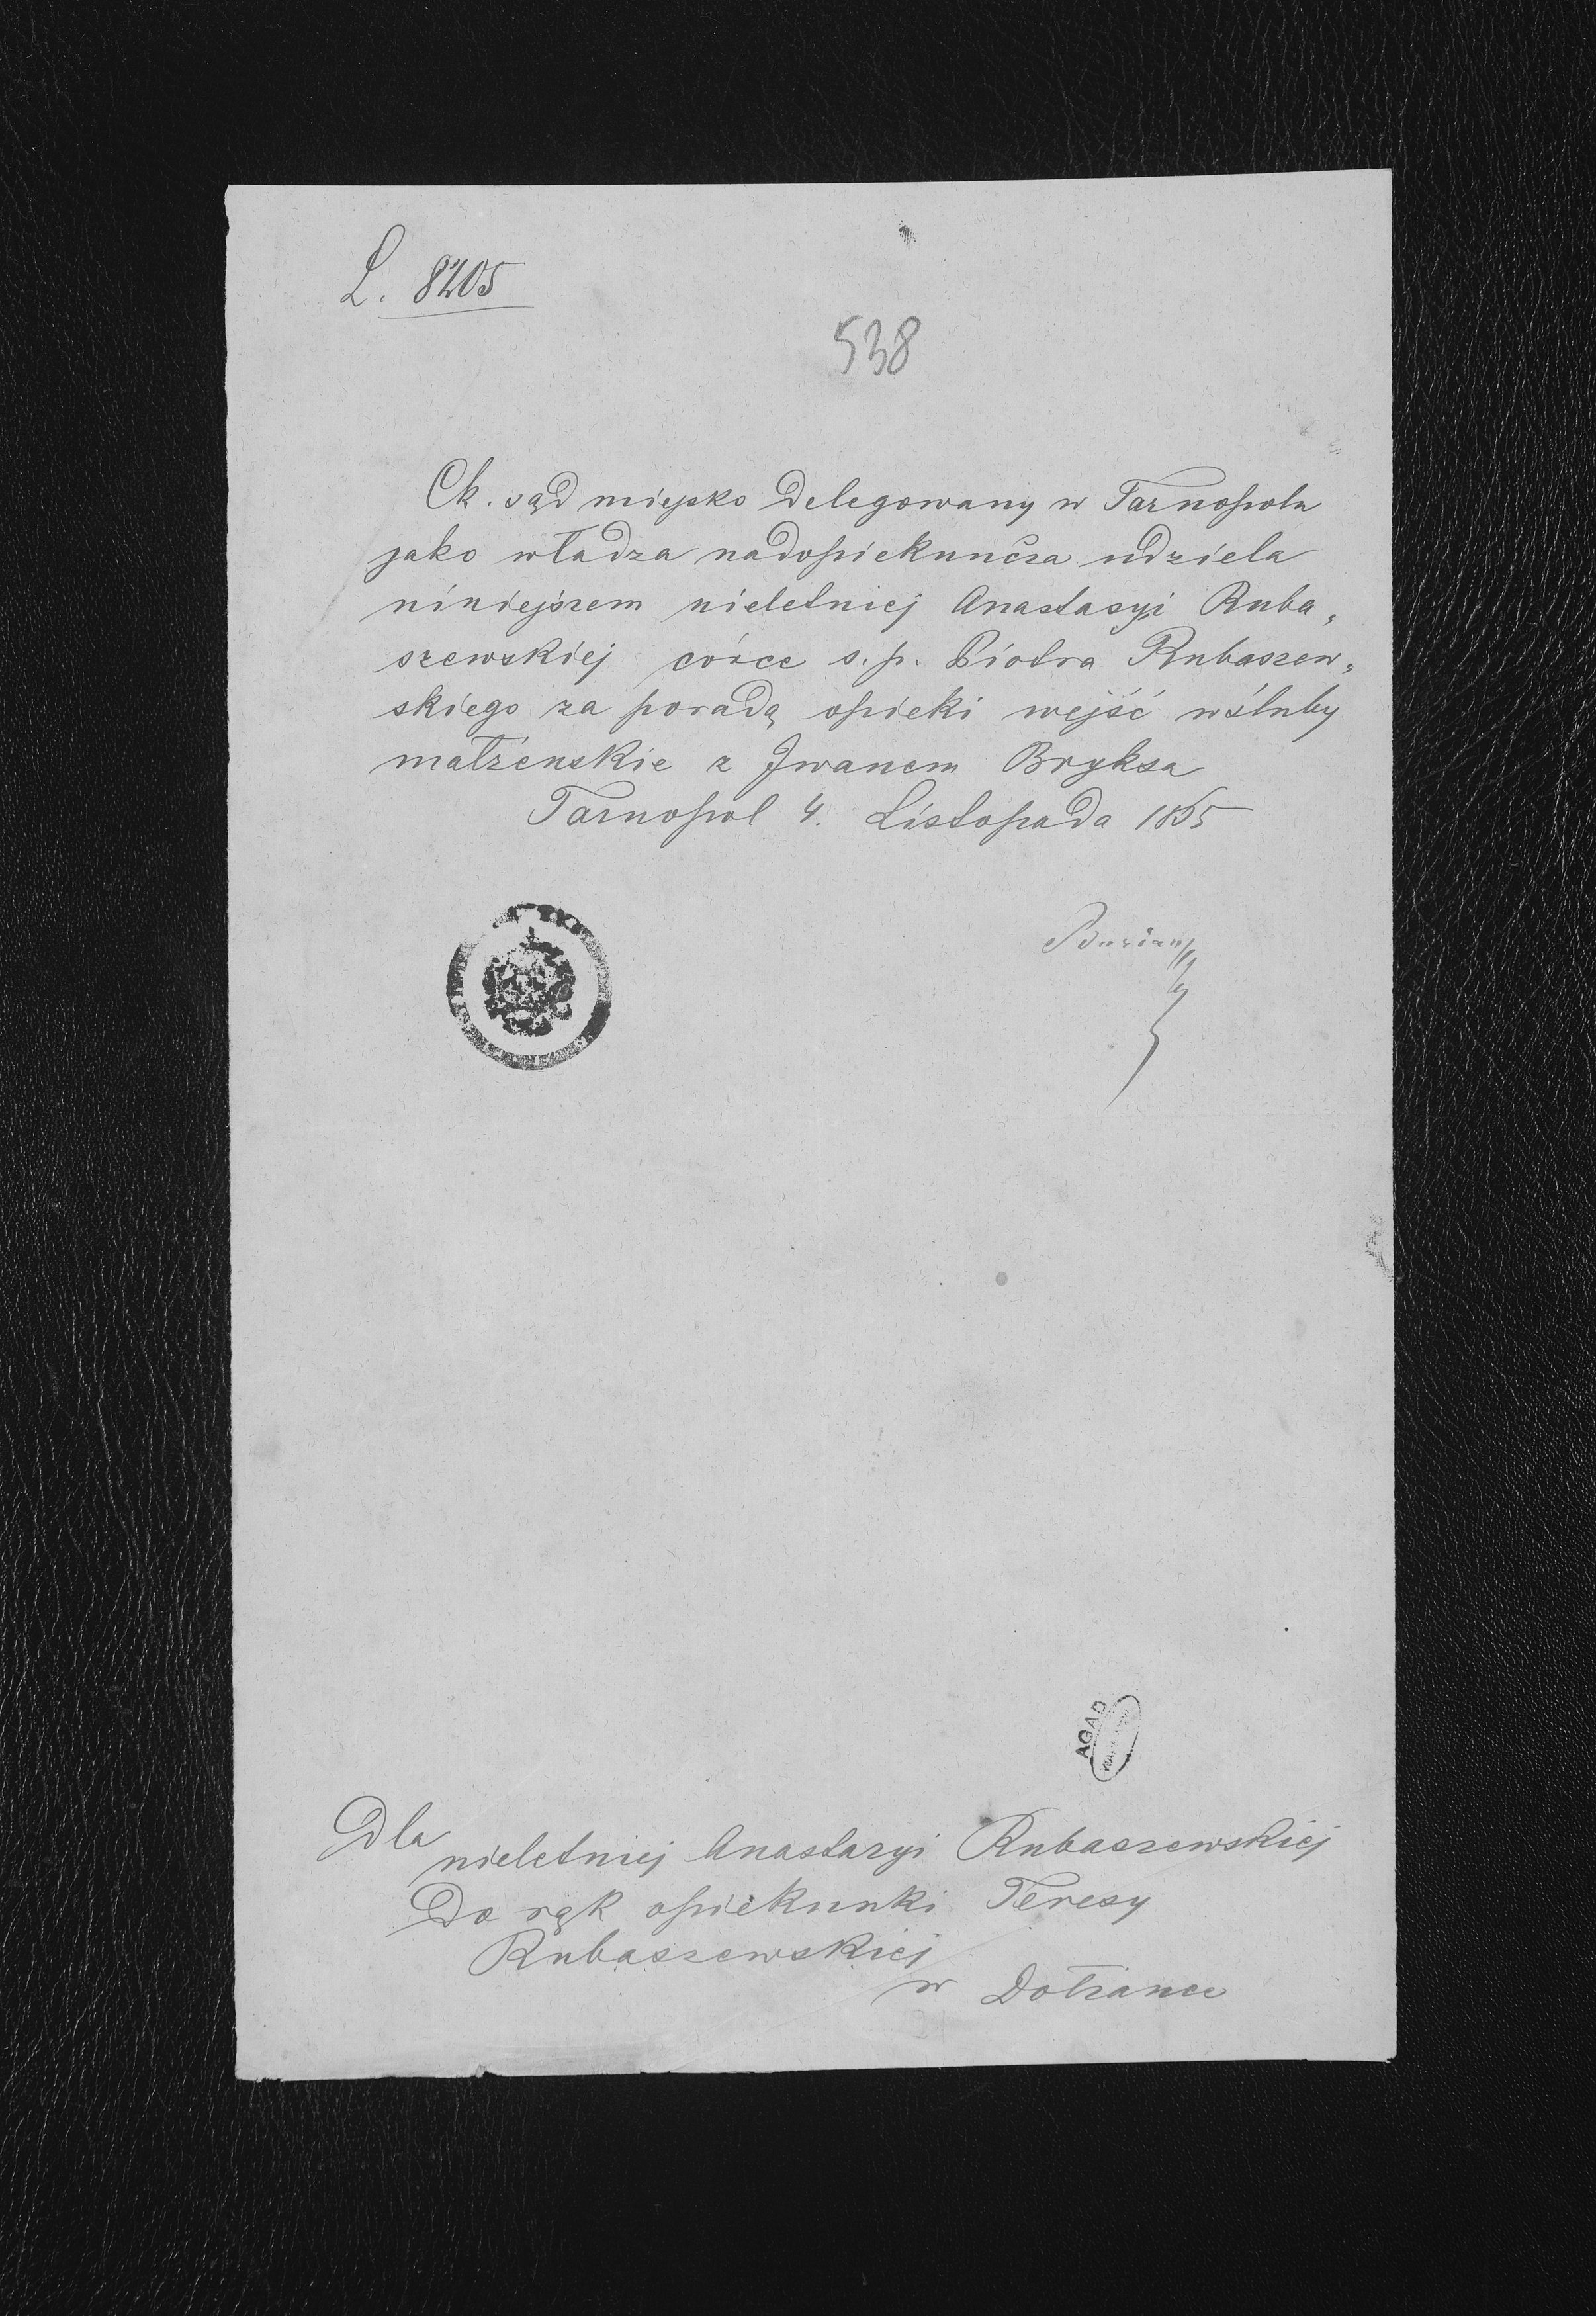 L. 8205
538
Ck. sąd miejsko Delegowany w Tarnopolu
jako władza nadopiekuńcza udziela
niniejszem nieletniej Anastasyi Ruba„
szewskiej córce s. p. Piotra Rubaszew„
skiego za poradą opieki wejść w śluby
małżenskie z Iwanem Bryksa
Tarnopol 4. Listopada 1865
AGAD
Dla
nieletniej Anastazyi Rubaszewskiej
Do rąk opiekunki Teresy
Rubaszewskiej
w Dołżance